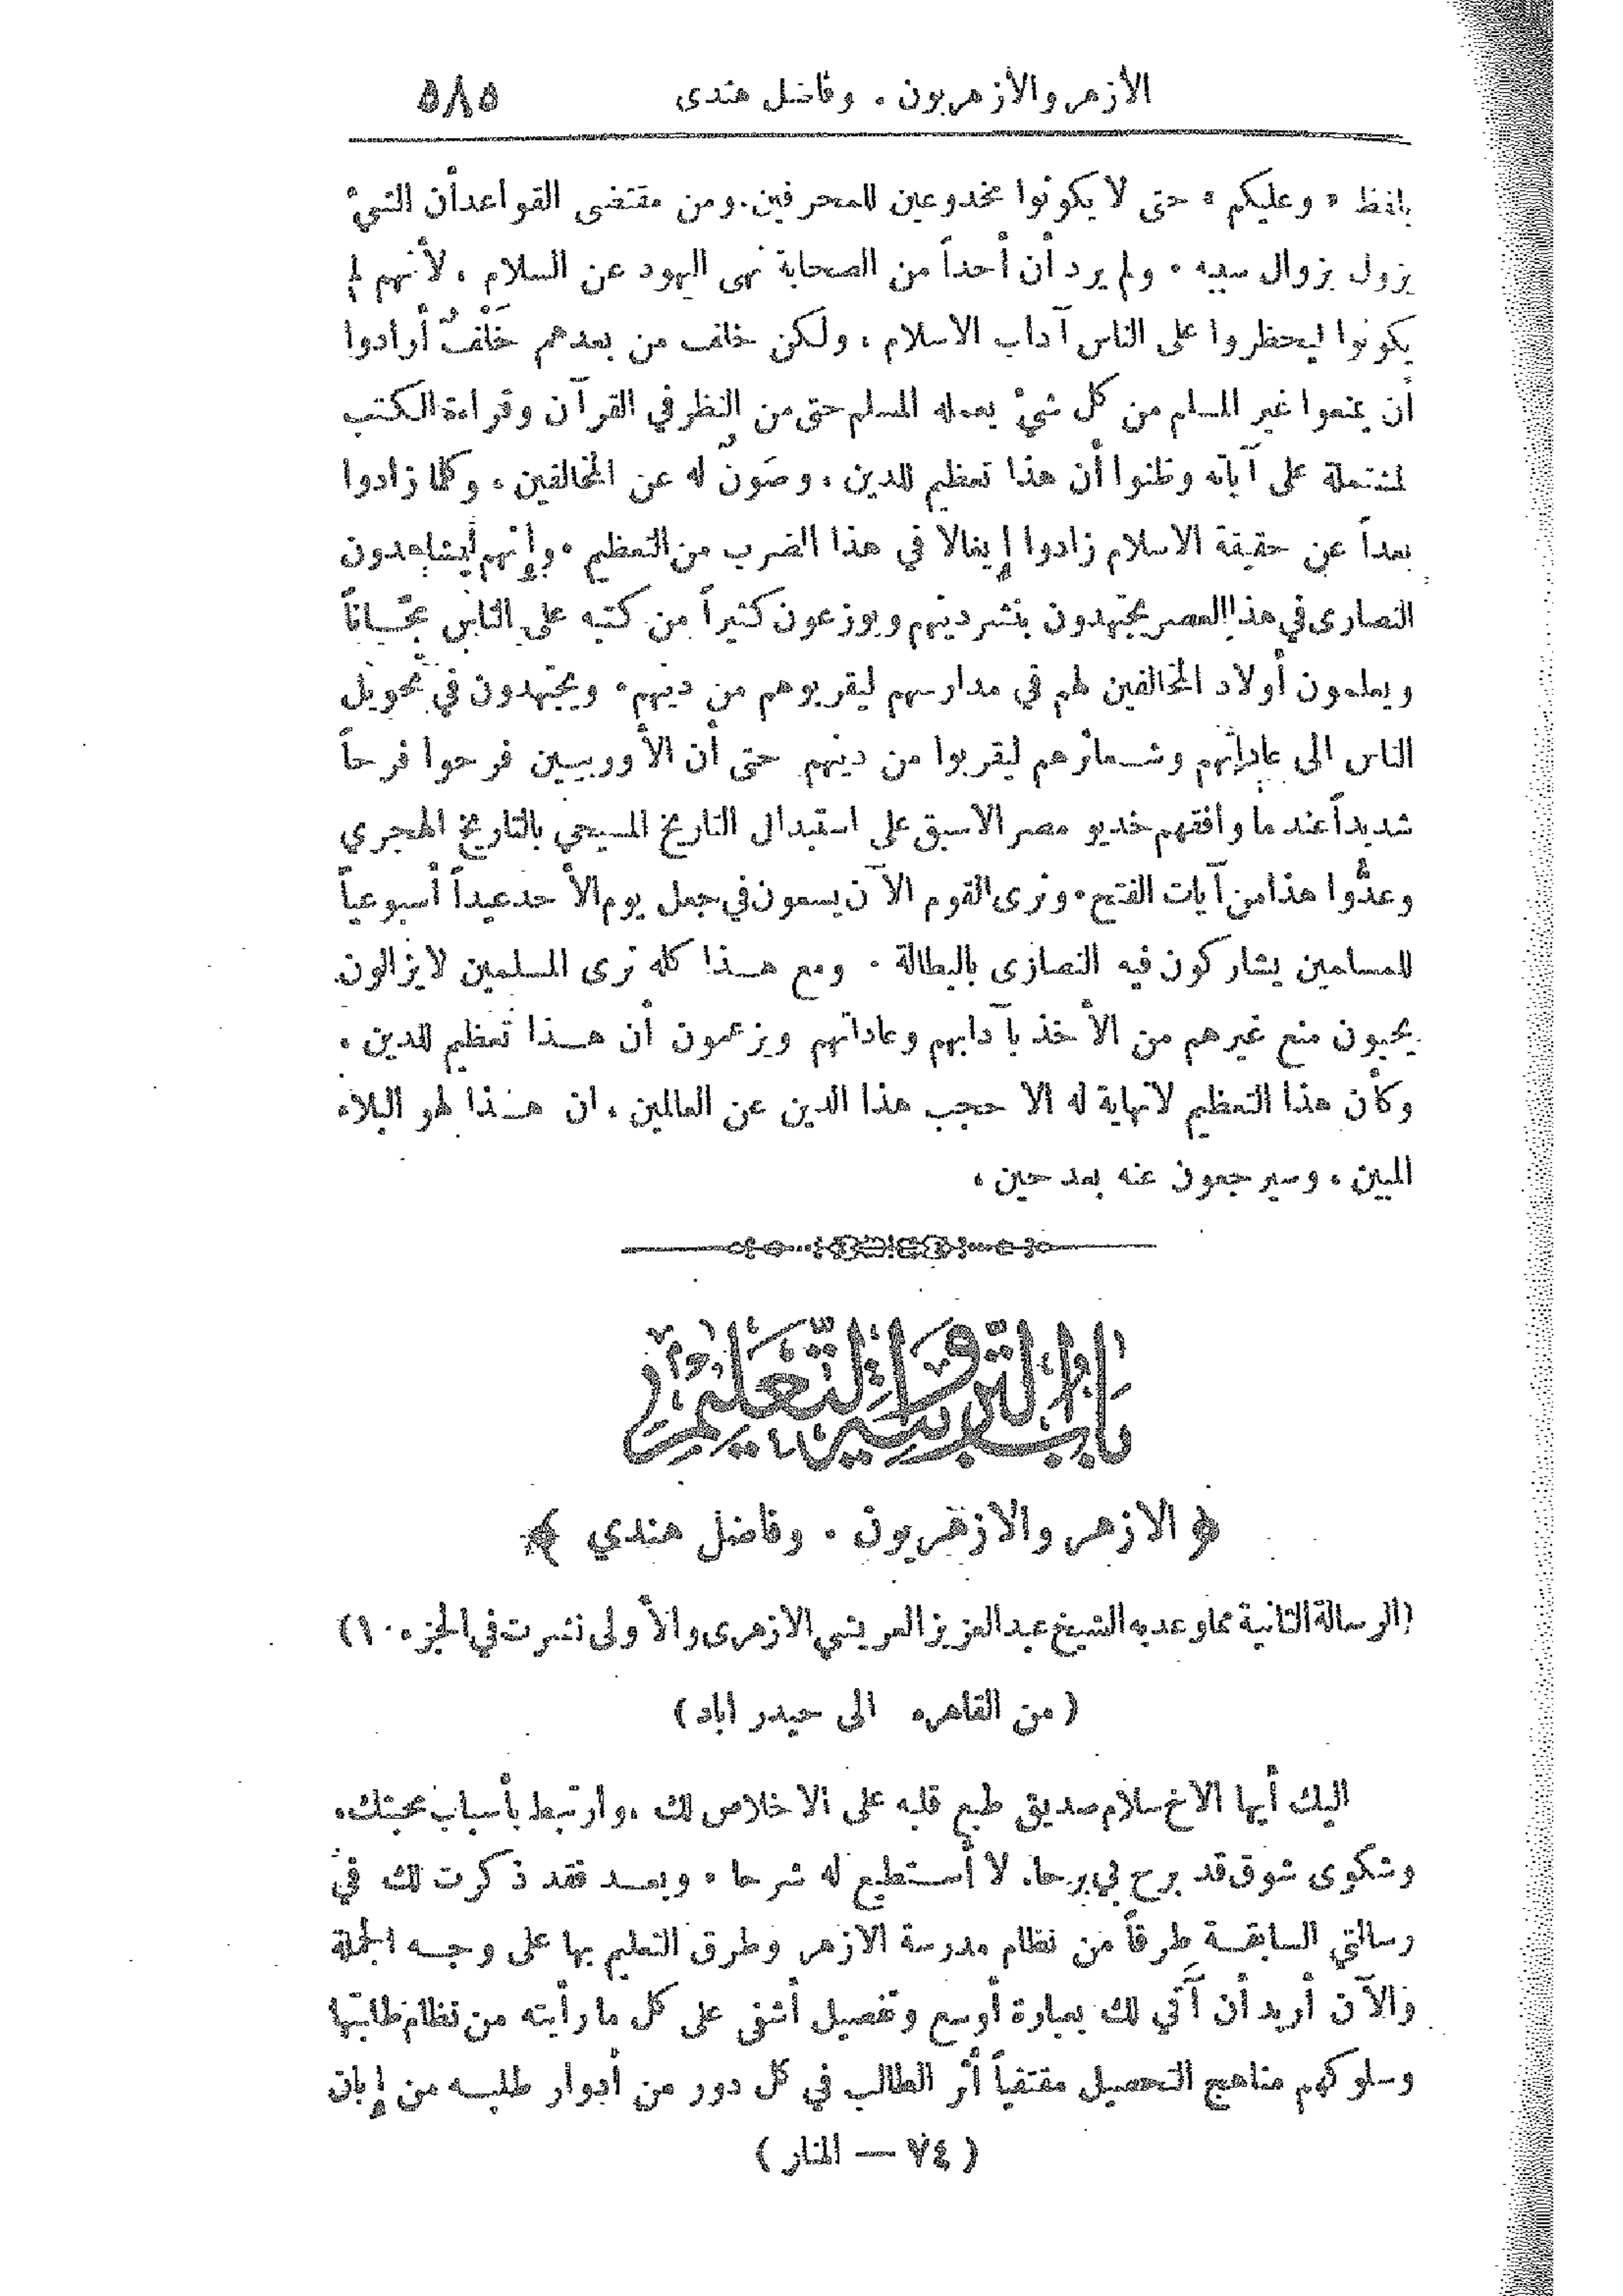 الأزهر والأزهريون . وفاضل هندى ٥٨٥
بلفظ « وعليكم » حتى لا يكونوا مخدوعين للمحرفين. ومن مقتضى القواعد أن الشيء
يزول بزوال سببه . ولم يرد أن أحداً من الصحابة نهى اليهود عن السلام ، لأنهم لم
يكونوا ليحظروا على الناس آداب الاسلام ، ولكن خلف من بعدهم خَلْفٌ أرادوا
أن يمنعوا غير المسلم من كل شيء يعمله المسلم حتى من النظر في القرآن وقراءة الكتب
المشتملة على آياته وظنوا أن هذا تعظيم للدين ، وصَونٌ له عن المخالفين ، وكلما زادوا
بعداً عن حقيقة الاسلام زادوا إيغالا في هذا الضرب من التعظيم . وإنهم ليشاهدون
النصارى في هذا العصر يجتهدون بنشر دينهم ويوزعون كثيراً من كتبه على الناس مجّاناً
ويعلمون أولاد المخالفين لهم في مدارسهم ليقربوهم من دينهم . ويجتهدون في تحويل
الناس الى عاداتهم وشعائرهم ليقربوا من دينهم حتى أن الأوربيين فرحوا فرحاً
شديداً عند ما وافقهم خديو مصر الاسبق على استبدال التاريخ المسيحي بالتاريخ الهجري
وعدُّوا هذا من آيات الفتح . ونرى القوم الآن يسعون في جعل يوم الأحد عيداً أسبوعياً
للمسلمين يشاركون فيه النصارى بالبطالة . ومع هذا كله نرى المسلمين لا يزالون
يحبون منع غيرهم من الأخذ بآدابهم وعاداتهم ويزعمون أن هذا تعظيم للدين .
وكأن هذا التعظيم لا نهاية له الا حجب هذا الدين عن العالمين ، ان هذا لهو البلاء
المبين ، وسيرجعون عنه بعد حين ،
باب التربية والتعليم
﴿ الازهر والازهريون . وفاضل هندي ﴾
(الرسالة الثانية مما وعد به الشيخ عبد العزيز العريشي الازهرى والأولى نشرت في الجزء ١٠)
( من القاهره الى حيدر اباد )
اليك أيها الاخ سلام صديق طبع قلبه على الاخلاص لك ، وارتبط بأسباب محبتك،
وشكوى شوق قد برح بي برحا، لا أستطيع له شرحا . وبعد فقد ذكرت لك في
رسالتي السابقة طرفاً من نظام مدرسة الازهر وطرق التعليم بها على وجه الجملة
والآن أريد أن آتي لك بعبارة أوسع وتفصيل أشفى على كل ما رأيته من نظام طلبتها
وسلوكهم مناهج التحصيل مقتفياً أثر الطالب في كل دور من أدوار طلبه من إبان
( ٧٤ — المنار )